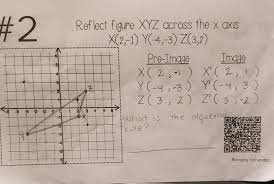 #2
Reflect figure XYZ across the x axis
X(2,-1) Y(-4,-3) Z(3,2)
Pre-Image Image
X( 2, -1 ) X'( 2, 1 )
Y( -4, -3 ) Y'( -4, 3 )
Z( 3, 2 ) Z'( 3, -2 )
What is the algebraic
rule?